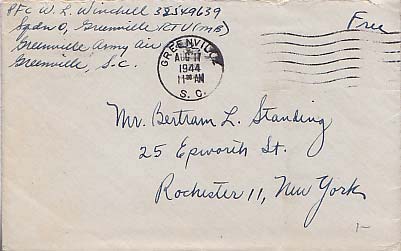 PFC W. L. Winchell 32549639
Sqdn O, Greenville RTU (MB)
Greenville Army Air
Greenville, S.C.
Free
GREENVILLE
AUG 17
1944
11 30 AM
S. C.
Mr. Bertram L. Standing
25 Epworth St.
Rochester 11, New York
1-